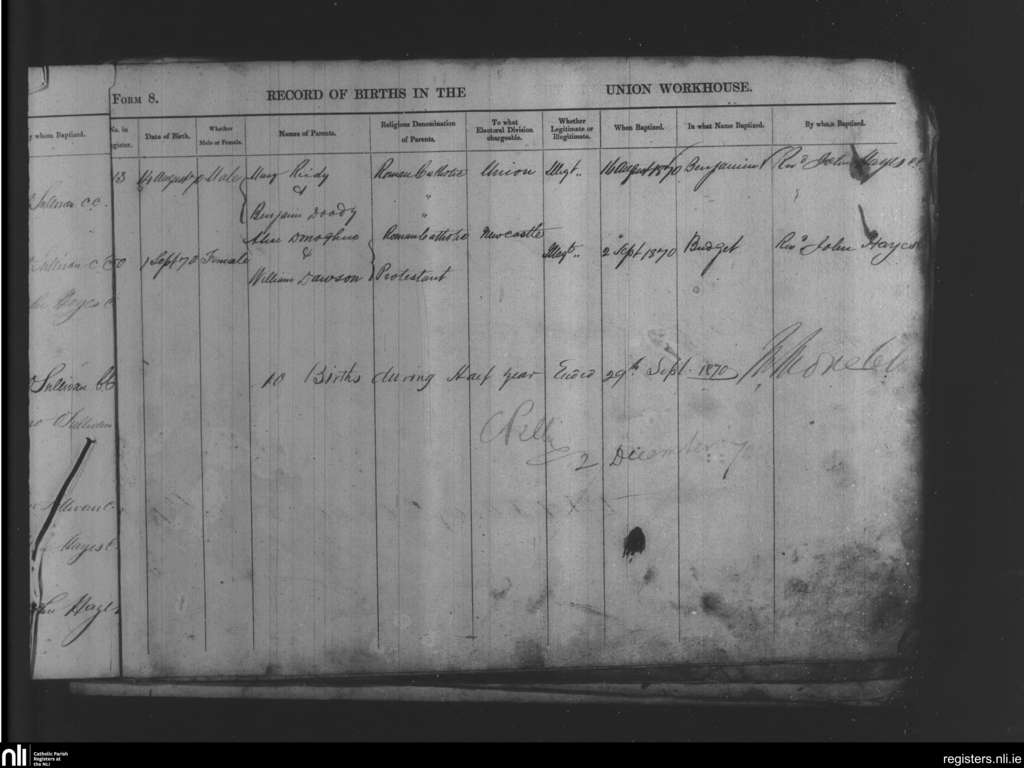 FORM 8. RECORD OF BIRTHS IN THE UNION WORKHOUSE.
y whom Baptized.
No. in Register.
Date of Birth.
Whether Male or Female.
Names of Parents.
Religious Denomination of Parents.
To what Electoral Division chargeable.
Whether Legitimate or Illegitimate.
When Baptized.
In what Name Baptized.
By whom Baptized.
13 14 August 70 Male Mary Reidy Roman Catholic Union Illegt.. 16 August 1870 Benjamin Revd John Hayes CC
&
Benjamin Doody "
Sullivan C.C.
Alice Donoghue Roman Catholic Newcastle
1 Sept 70 Female & Illegt.. 2 Sept 1870 Bridget Revd John Hayes
William Dawson Protestant
Sullivan C C
Hayes C
10 Births during Half Year Ended 29th Sept. 1870
Sullivan CC
Sullivan
2 December 70
Hayes C
Hayes
nli Catholic Parish Registers at the NLI
registers.nli.ie